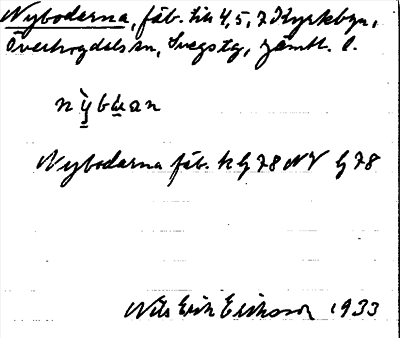 Nyboderna, fäb. till 4, 5, 7 Kyrkbyn,
Överhogdals sn, Svegs tg, Jämtl. l.
nỳbu̲an
Nybodarna fäb. k G 78 NV G 78
Nils Erik Eriksson 1933